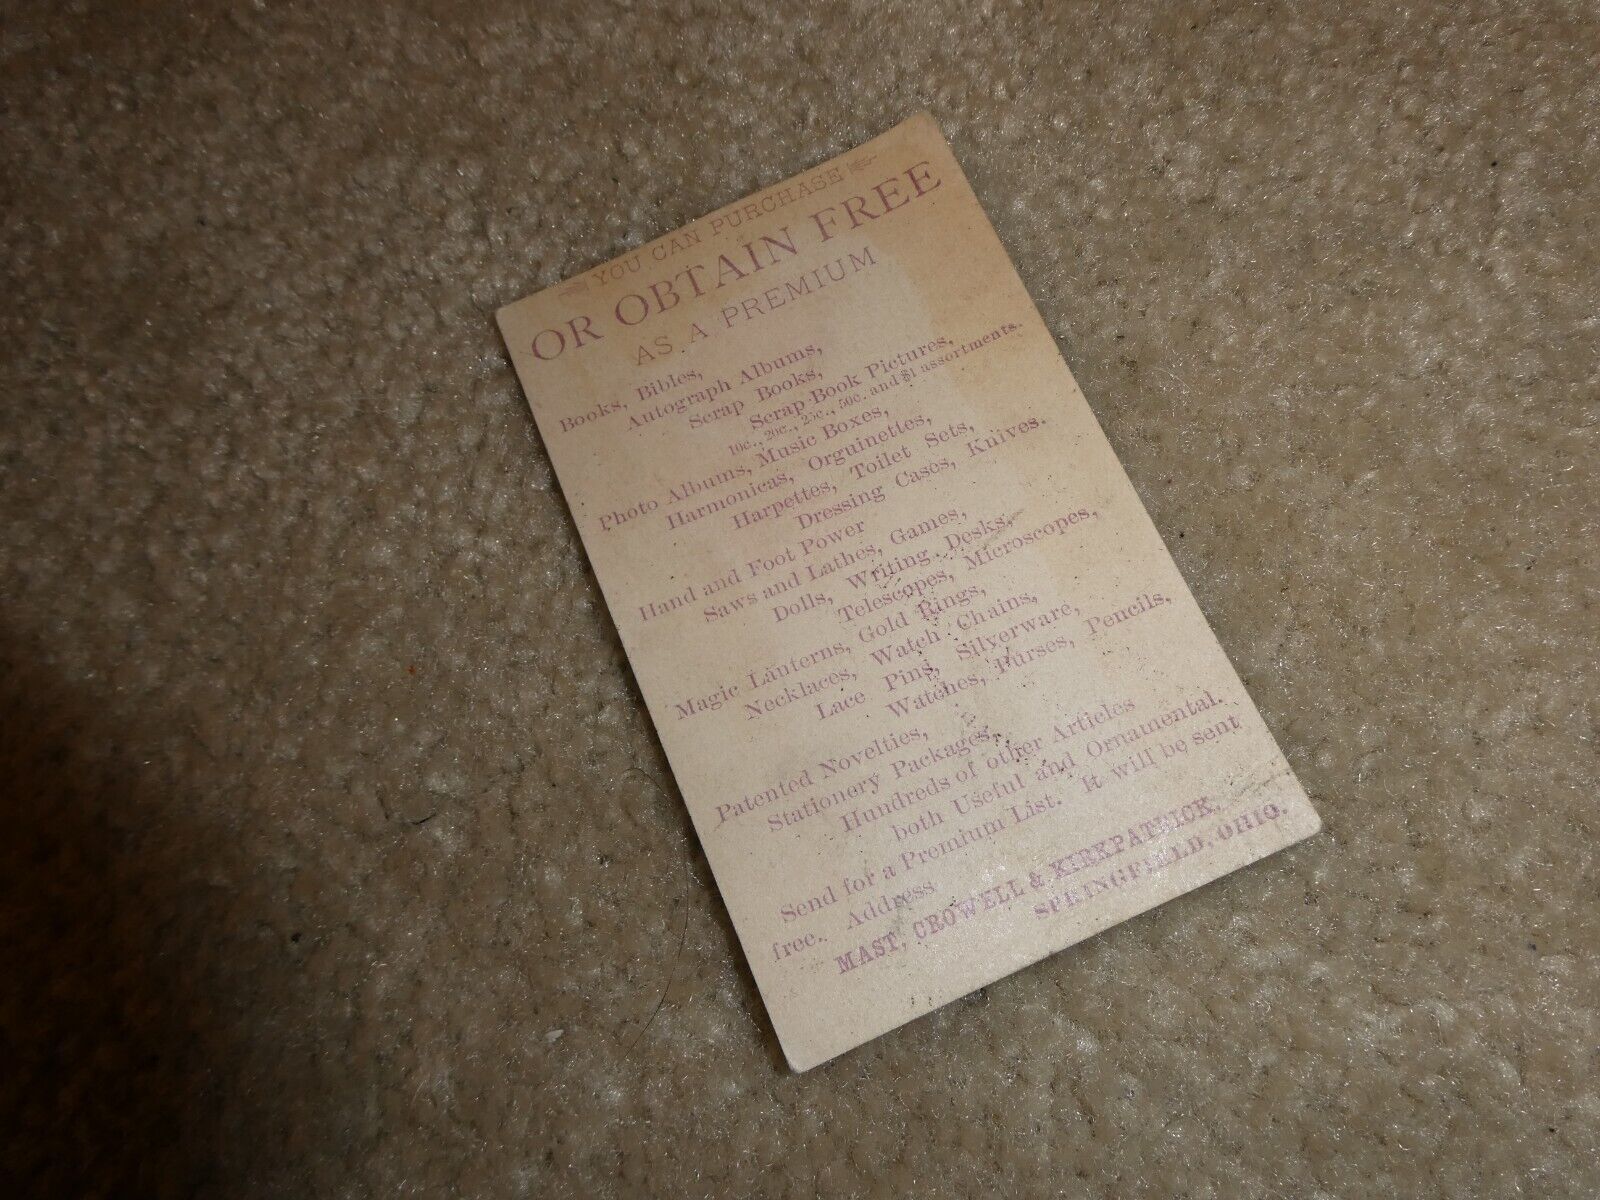 YOU CAN PURCHASE
OR OBTAIN FREE
AS A PREMIUM
Books, Bibles,
Autograph Albums,
Scrap Books,
Scrap-Book Pictures,
10c., 20c., 25c., 50c. and $1 assortments.
Photo Albums, Music Boxes,
Harmonicas, Orguinettes,
Harpettes, Toilet Sets,
Dressing Cases, Knives.
Hand and Foot Power
Saws and Lathes, Games,
Dolls, Writing Desks,
Telescopes, Microscopes,
Magic Lanterns, Gold Rings,
Necklaces, Watch Chains,
Lace Pins, Silverware,
Watches, Purses, Pencils,
Patented Novelties,
Stationery Packages,
Hundreds of other Articles
both Useful and Ornamental.
Send for a Premium List. It will be sent
free. Address
MAST, CROWELL & KIRKPATRICK,
SPRINGFIELD, OHIO.